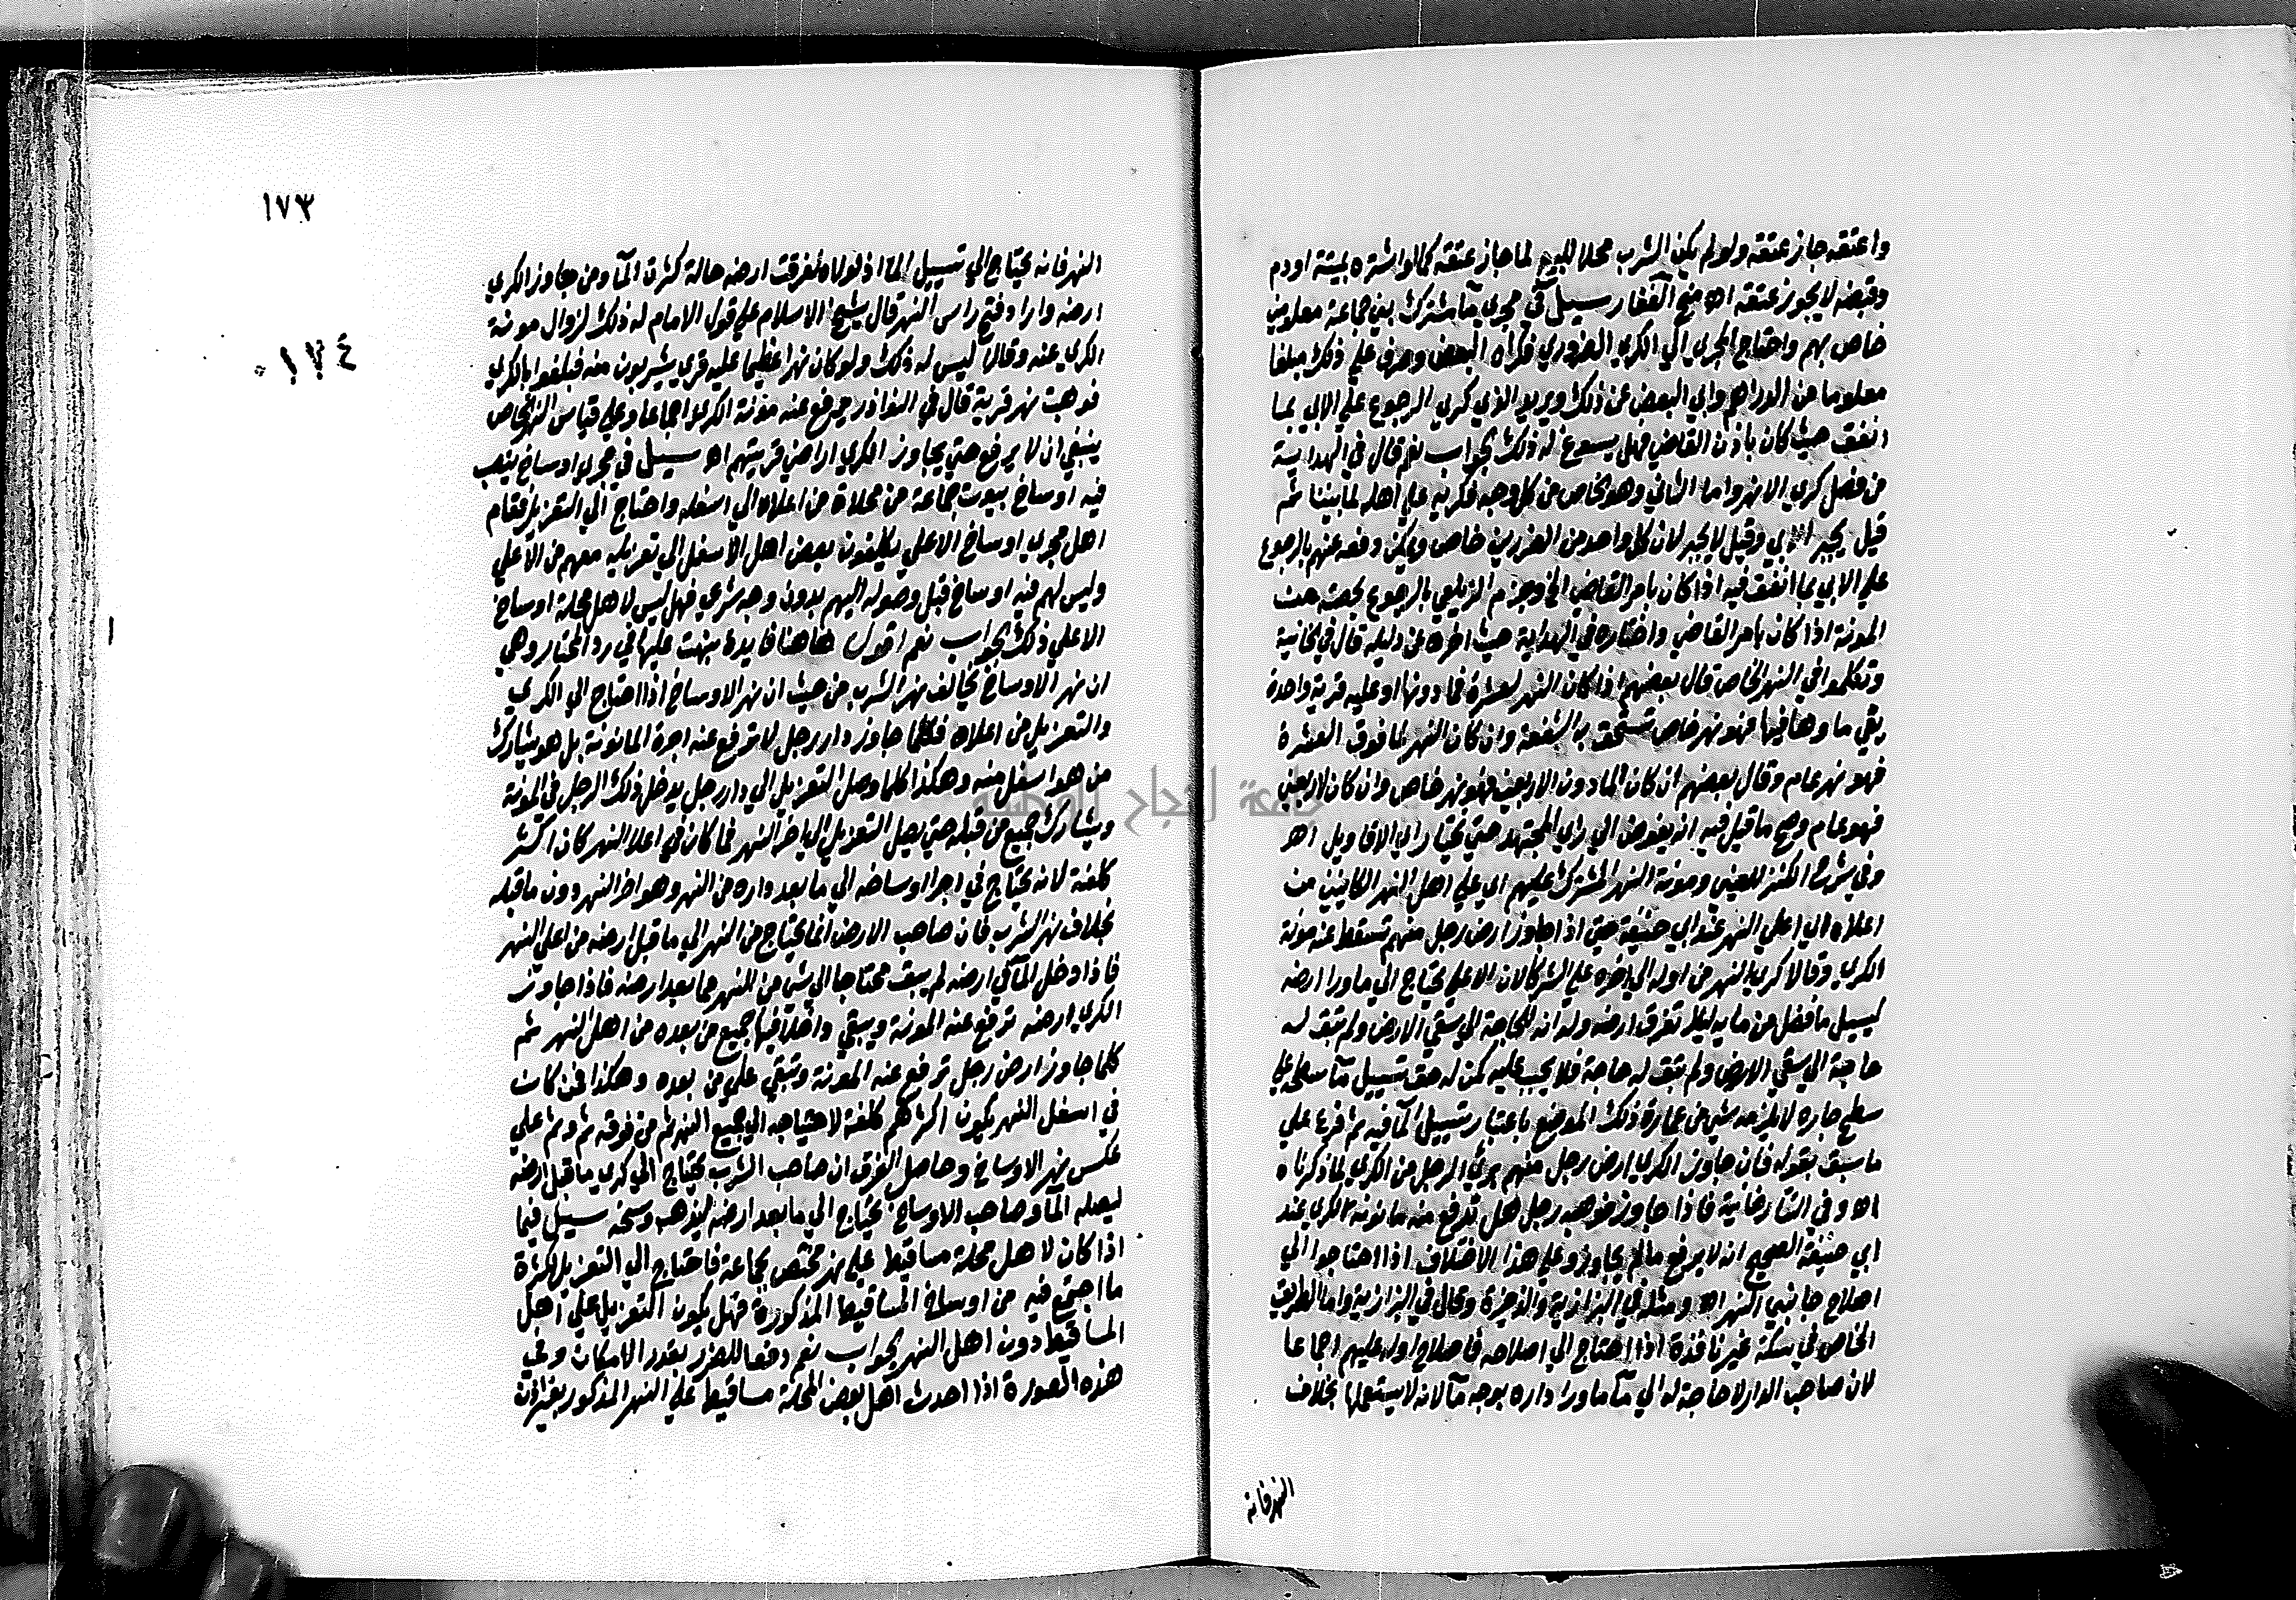 واعتقه جاز عتقه ولو لم يكن الشرب محلا للبيع لما جاز عتقه كما لو اشتره بميتة او دم
وقبضه لا يجوز عتقه اه منح الغفار سيل في مجري مآ مشترك بين جماعة معلومين
خاص بهم واحتاج المجري الي الكري الضروري فكراه البعض وصرف علي ذلك مبلغا
معلوما من الدراهم وابي البعض عن ذلك ويريد الذي كري الرجوع علي الابي بما
انفق حيث كان باذن القاضي فهل يسوغ له ذلك الجواب نعم قال في الهداية
من فصل كري الانهر واما الثاني وهو الخاص من كل وجه فكريه علي اهله لما بينا ثم
قيل يجبر الابي وقيل لا يجبر لان كل واحد من الضررين خاص ويمكن دفعه عنهم بالرجوع
علي الابي بما انفق فيه اذا كان بامر القاضي الخ وجزم الزيلعي بالرجوع بحصته من
المونة اذا كان بامر القاضي واختاره في الهداية حيث اخره عن دليله قال في الخانية
وتكلموا في النهر الخاص قال بعضهم اذا كان النهر لعشرة فما دونها او عليه قرية واحدة
يفني ماوها فيها فهو نهر خاص تستحق به الشفعة وان كان النهر لما فوق العشرة
فهو نهر عام وقال بعضهم ان كان لما دون الاربعين فهو نهر خاص وان كان لاربعين
فهو عام وصح ما قيل فيه ان يفوض الي راي المجتهد حتي يختار اي الاقاويل اه
وفي شرح الكنز للعيني ومونة النهر المشترك عليهم اي علي اهل النهر الكاينين من
اعلاه اي اعلي النهر عند ابي حنيفة حتي اذا جاوز ارض رجل منهم تسقط عنه مونة
الكري وقالا كري النهر من اوله الي اخره علي الشركا لان الاعلي يحتاج الي ما ورا ارضه
ليسيل ما فضل من مايه ليلا تغرق ارضه وله انه للحاجة الي سقي الارض ولم تبق له
حاجة الي سقي الارض ولم تبق له حاجة فلا يجب عليه كمن له حق تسييل مآ سطحه علي
سطح جاره لا يلزمه شي من عمارة ذلك الموضع باعتبار تسييل المآ فيه ثم فرع علي
ما سبق بقوله فان جاوز الكري ارض رجل منهم بري الرجل من الكري لما ذكرناه
اه وفي التتارخانية فاذا جاوز فوهة رجل هل ترفع منه مانونة الكري عند
ابي حنيفة الصحيح انه لا يرفع مالم يجاوز وعلي هذا الاختلاف اذا احتاجوا الي
اصلاح جانبي النهر اه ومثله في البزازية والذخيرة وقال في البزازية واما الطريق
الخاص في سكة غير نافذة اذا احتاج الي اصلاحه فاصلاح اوله عليهم اجماعا
لان صاحب الدار لا حاجة له الي مآ ما ورا داره بوجه مآ لانه لا يستعملها بخلاف
النهر فانه
١٧٣
١٧٤
النهر فانه يحتاج الي تسييل المآ اذ لولاه لغرقت ارضه حالة كثرة المآ ومن جاوز الكري
ارضه وارا د فتح راس النهر قال شيخ الاسلام علي قول الامام له ذلك لزوال مونة
الكري عنه وقالا ليس له ذلك ولو كان نهرا عظيما عليه قري يشربون منه فبلغوا بالكري
فوهت نهر قرية قال في النوادر يرفع عنه مؤنة الكري اجماعا وعلي قياس النهر الخاص
ينبغي ان لا يرفع حتي يجاوز الكري اراضي قريتهم اه سيل في مجري اوساخ ينصب
فيه اوساخ بيوت جماعة من محلاة من اعلاه الي اسفله واحتاج الي التعزيل فقام
اهل مجري اوساخ الاعلي يكلفون بعض اهل الاسفل الي تعزيله معهم من الاعلي
وليس لهم فيه اوساخ قبل وصوله اليهم بدون وجه شرعي فهل ليس لاهل محلة اوساخ
الاعلي ذلك الجواب نعم اقول هاهنا فايدة نبهت عليها في رد المحتار وهي
ان نهر الاوساخ يخالف نهر الشرب من حيث ان نهر الاوساخ اذا احتاج الي الكري
والتعزيل من اعلاه فكلما جاوز دار رجل لا ترفع عنه اجرة المانونة بل هو يشارك
من هو اسفل منه وهكذا كلما وصل التعزيل الي دار رجل يدخل ذلك الرجل في المونة
ويشارك جميع من قبله حتي يصل التعزيل الي اخر النهر فما كان في اعلا النهر كان اكثر
كلفة لانه يحتاج في اجرا اوساخه الي ما بعد داره من النهر وهو اخر النهر دون ما قبله
بخلاف نهر الشرب فان صاحب الارض انما يحتاج من النهر الي ما قبل ارضه من اعلي النهر
فاذا دخل المآ الي ارضه لم يبق محتاجا الي شي من النهر مما بعد ارضه فاذا جاوز
الكري ارضه ترفع عنه المونة ويبقي داخلا فيها جميع من بعده من اهل النهر ثم
كلما جاوز ارض رجل ترفع عنه المونة وتبقي علي من بعده وهكذا فمن كان
في اسفل النهر يكون اكثرهم كلفة لاحتياجه الي جميع النهر ثم من فوقه ثم وثم علي
عكس نهر الاوساخ وحاصل الفرق ان صاحب الشرب يحتاج الي كري ما قبل ارضه
ليصله المآ وصاحب الاوساخ يحتاج الي ما بعد ارضه ليذهب وسخه سيل فيما
اذا كان لاهل محلة مساقيط علي نهر مختص بجماعة فاحتاج الي التعزيل لكثرة
ما اجتمع فيه من اوساخ المساقيط المذكورة فهل يكون التعزيل علي اهل
المساقيط دون اهل النهر الجواب نعم دفعا للضرر بقدر الامكان وفي
هذه الصورة اذا احدث اهل بعض المحلة مساقيط علي النهر المذكور بغير اذن